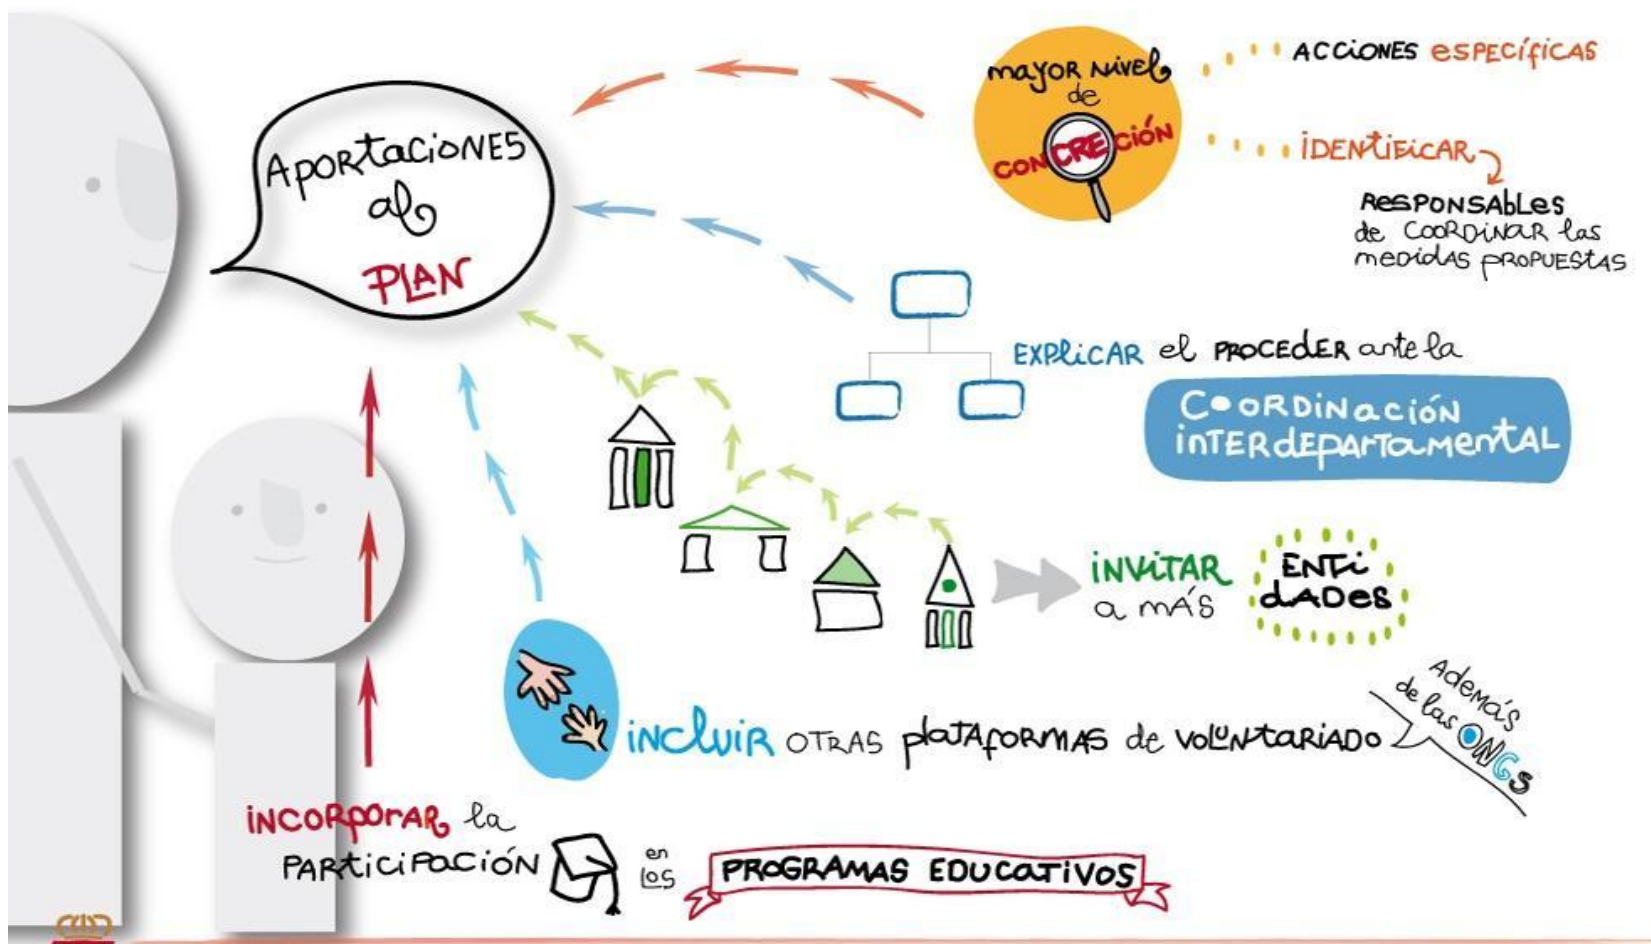 APORTACIONES
al
PLAN
MAYOR NIVEL
de
CONCRECIÓN
ACCIONES ESPECÍFICAS
IDENTIFICAR
RESPONSABLES
de COORDINAR las
MEDIDAS PROPUESTAS
EXPLICAR el PROCEDER ante la
COORDINACIÓN
INTERDEPARTAMENTAL
INVITAR
a MÁS
ENTI
DADES
INCLUIR OTRAS PLATAFORMAS de VOLUNTARIADO
ADEMÁS
de las ONGS
INCORPORAR la
PARTICIPACIÓN
en
los
PROGRAMAS EDUCATIVOS